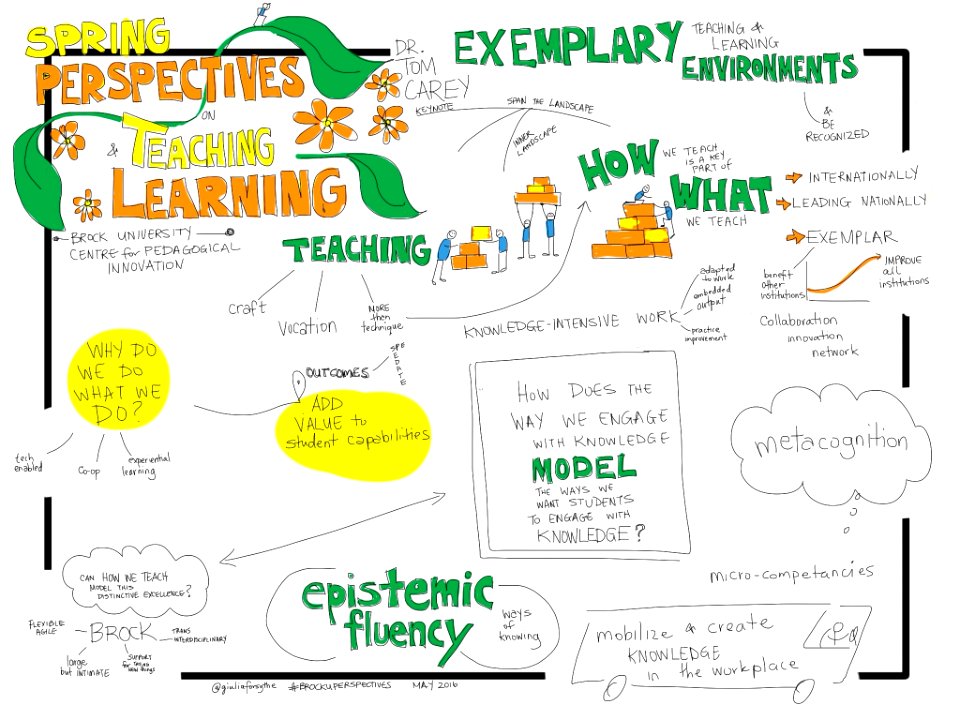 SPRING
PERSPECTIVES
ON
& TEACHING
LEARNING
BROCK UNIVERSITY
CENTRE for PEDAGOGICAL
INNOVATION
DR.
TOM
CAREY
KEYNOTE
EXEMPLARY
TEACHING &
LEARNING
ENVIRONMENTS
& BE
RECOGNIZED
SPAN THE LANDSCAPE
INNER
LANDSCAPE
HOW
WE TEACH
IS A KEY
PART OF
WHAT
WE TEACH
INTERNATIONALLY
LEADING NATIONALLY
EXEMPLAR
benefit
other
institutions
IMPROVE
all
institutions
Collaboration
innovation
network
TEACHING
craft
Vocation
MORE
then
technique
KNOWLEDGE-INTENSIVE WORK
adapted
to work
embedded
output
practice
improvement
WHY DO
WE DO
WHAT WE
DO?
tech
enabled
Co-op
experiential
learning
OUTCOMES
ADD
VALUE to
student capabilities
HOW DOES THE
WAY WE ENGAGE
WITH KNOWLEDGE
MODEL
THE WAYS WE
WANT STUDENTS
TO ENGAGE WITH
KNOWLEDGE?
metacognition
micro-competancies
CAN HOW WE TEACH
MODEL THIS
DISTINCTIVE EXCELLENCE?
FLEXIBLE
AGILE
BROCK
TRANS
INTERDISCIPLINARY
large
but INTIMATE
SUPPORT
for TRYING
NEW THINGS
epistemic
fluency
ways
of
knowing
mobilize & create
KNOWLEDGE
in the workplace
@giuliaforsythe #BROCKUPERSPECTIVES MAY 2016